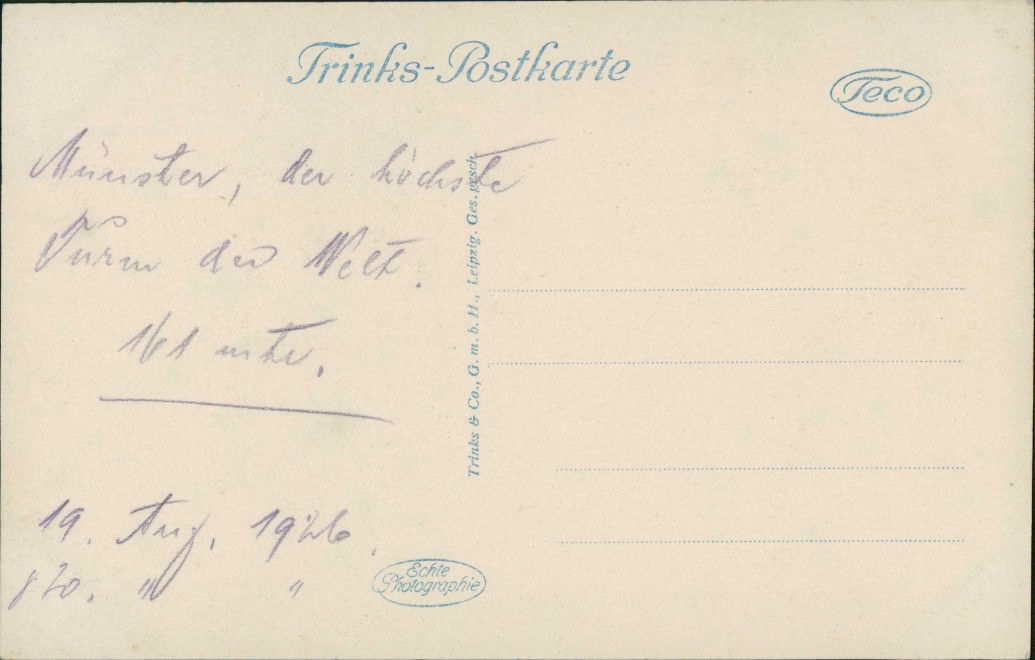 Trinks-Postkarte
Teco
Münster, der höchste
Turm der Welt.
161 mtr.
19. Aug. 1926.
20. " "
Trinks & Co., G. m. b. H., Leipzig. Ges. gesch.
Echte
Photographie